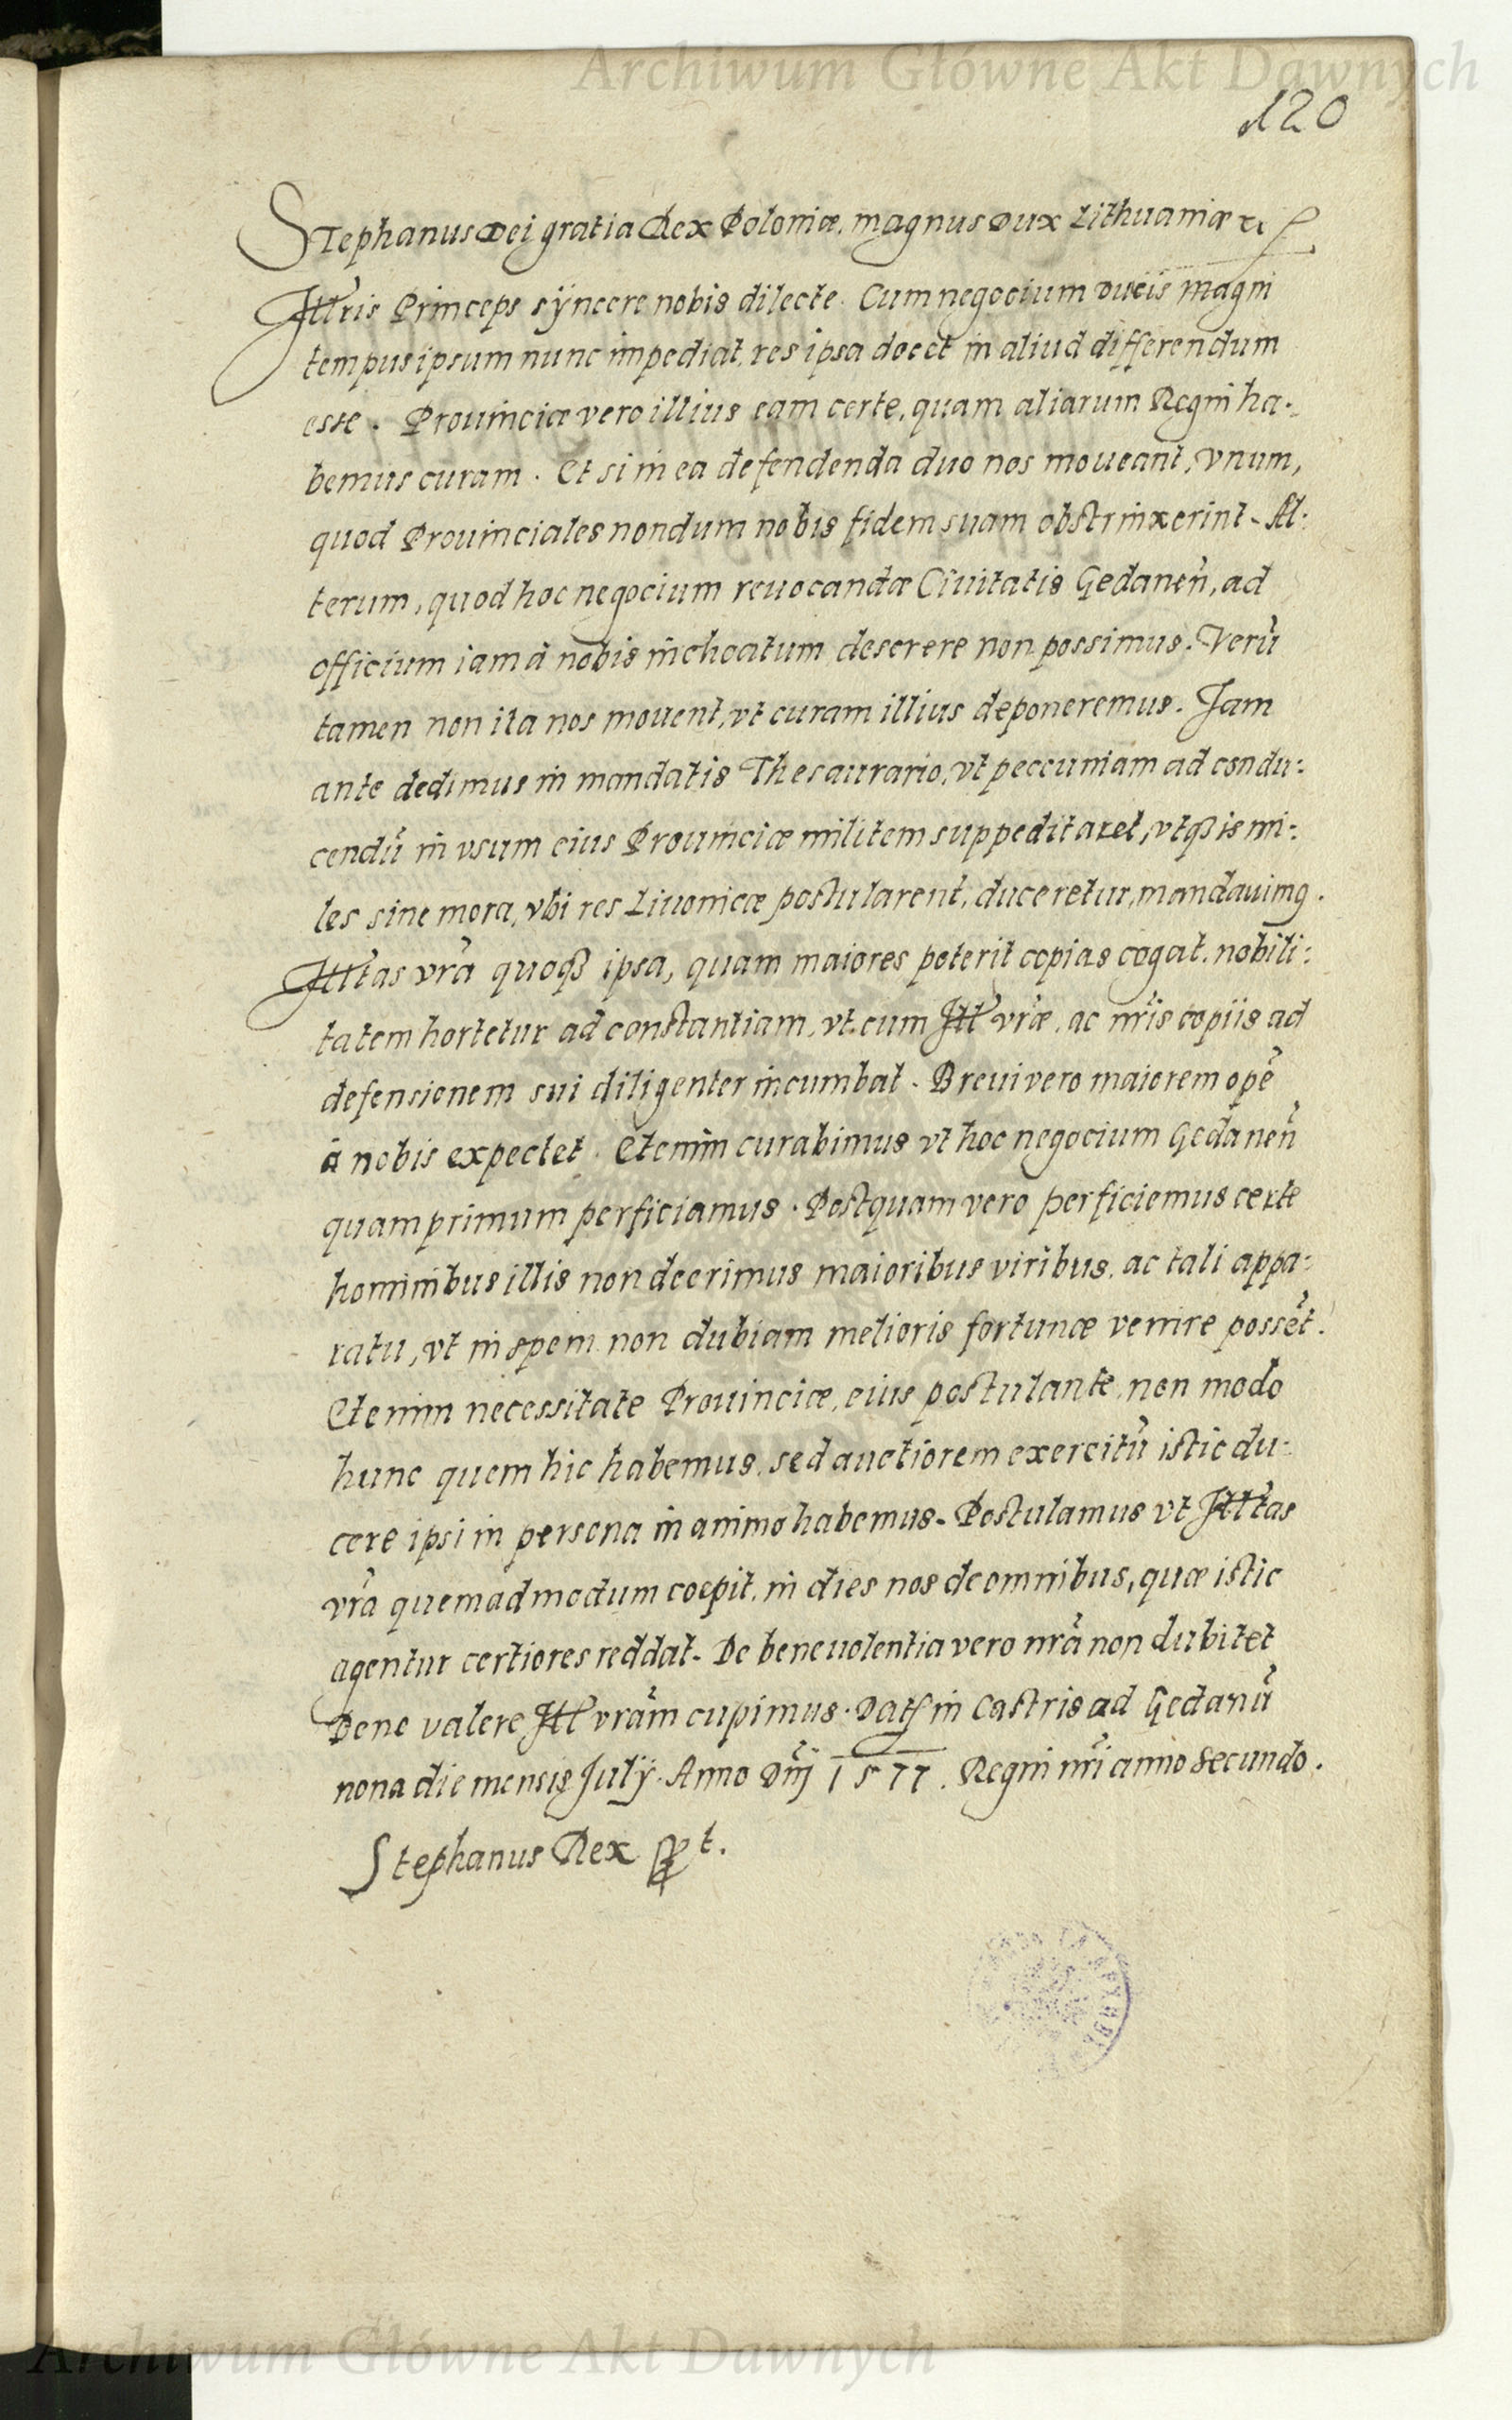 Archiwum Główne Akt Dawnych
120
Stephanus Dei gratia Rex Poloniæ, magnus Dux Lithuaniæ etc
Illris Princeps syncere nobis dilecte. Cum negocium Ducis Magni
tempus ipsum nunc impediat, res ipsa docet in aliud differendum
esse. Prouinciæ vero illius eam certe, quam aliarum Regni ha-
bemus curam. Et si in ea defendenda duo nos moueant, vnum,
quod Prouinciales nondum nobis fidem suam obstrinxerint. Al:
terum, quod hoc negocium reuocandæ Ciuitatis Gedaneñ, ad
officium iam à nobis inchoatum deserere non possimus. Verũ
tamen non ita nos mouent, vt curam illius deponeremus. Jam
ante dedimus in mandatis Thesaurario, vt peccuniam ad condu:
cendũ in vsum eius Prouinciæ militem suppeditaret, vtq3 is mi:
les sine mora, vbi res Liuonicæ postularent, duceretur, mandauimg.
Illtas vrã quoq3 ipsa, quam maiores poterit copias cogat, nobili:
tatem hortetur ad constantiam, vt cum Ill vræ, ac nris copiis ad
defensionem sui diligenter incumbat. Breui vero maiorem opẽ
à nobis expectet. Etenim curabimus vt hoc negocium Gedaneñ
quamprimum perficiamus. Postquam vero perficiemus certe
hominibus illis non deerimus maioribus viribus, ac tali appa:
ratu, vt in spem non dubiam melioris fortunæ venire possẽt.
Etenim necessitate Prouinciæ, eius postulante, non modo
hunc quem hic habemus, sed auctiorem exercitũ istic du:
cere ipsi in persona in animo habemus. Postulamus vt Illtas
vrã quemadmodum coepit, in dies nos de omnibus, quæ istic
agentur certiores reddat. De beneuolentia vero nrã non dubitet
Bene valere Ill vrãm cupimus. Dat in Castris ad Gedanũ
nona die mensis Julÿ. Anno Dnĩ 1577. Regni nrĩ anno Secundo.
Stephanus Rex sst.
Archiwum Główne Akt Dawnych